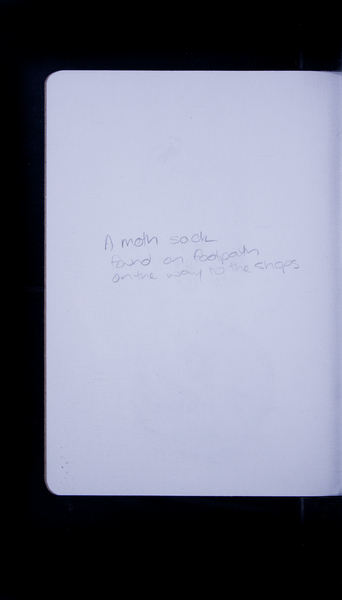 A moth sack
found on footpath
on the way to the shops